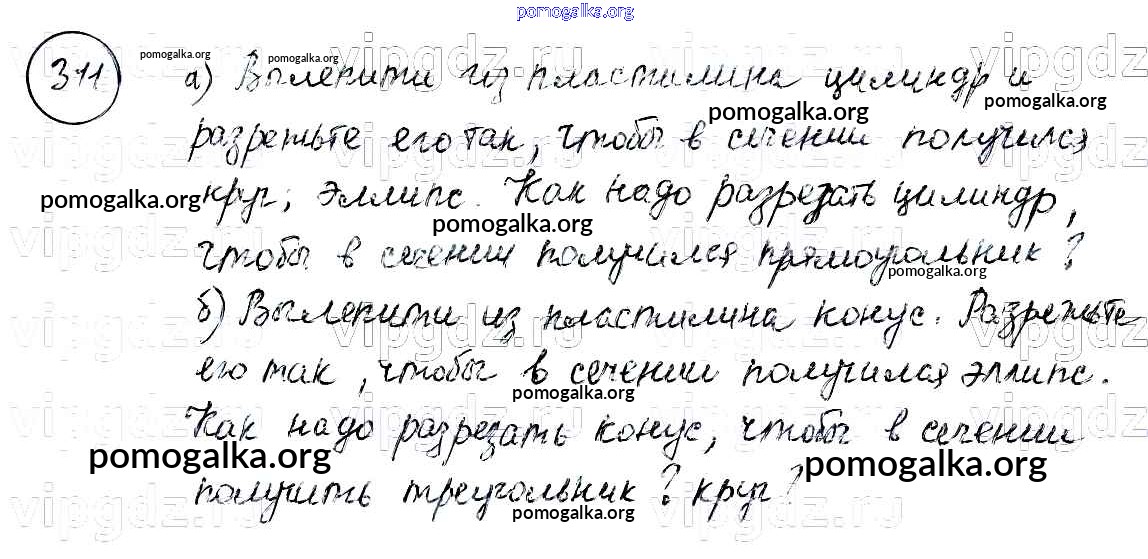 pomogalka.org
311 а) Вылепити из пластилина цилиндр и
разрежьте его так, чтобы в сечении получился
круг; эллипс. Как надо разрезать цилиндр,
чтобы в сечении получился прямоугольник?
б) Вылепити из пластилина конус. Разрежьте
его так, чтобы в сечении получился эллипс.
Как надо разрезать конус, чтобы в сечении
получить треугольник? круг?
pomogalka.org
pomogalka.org
pomogalka.org
pomogalka.org
pomogalka.org
pomogalka.org
pomogalka.org
pomogalka.org
pomogalka.org
pomogalka.org
pomogalka.org
vipgdz.ru
vipgdz.ru
vipgdz.ru